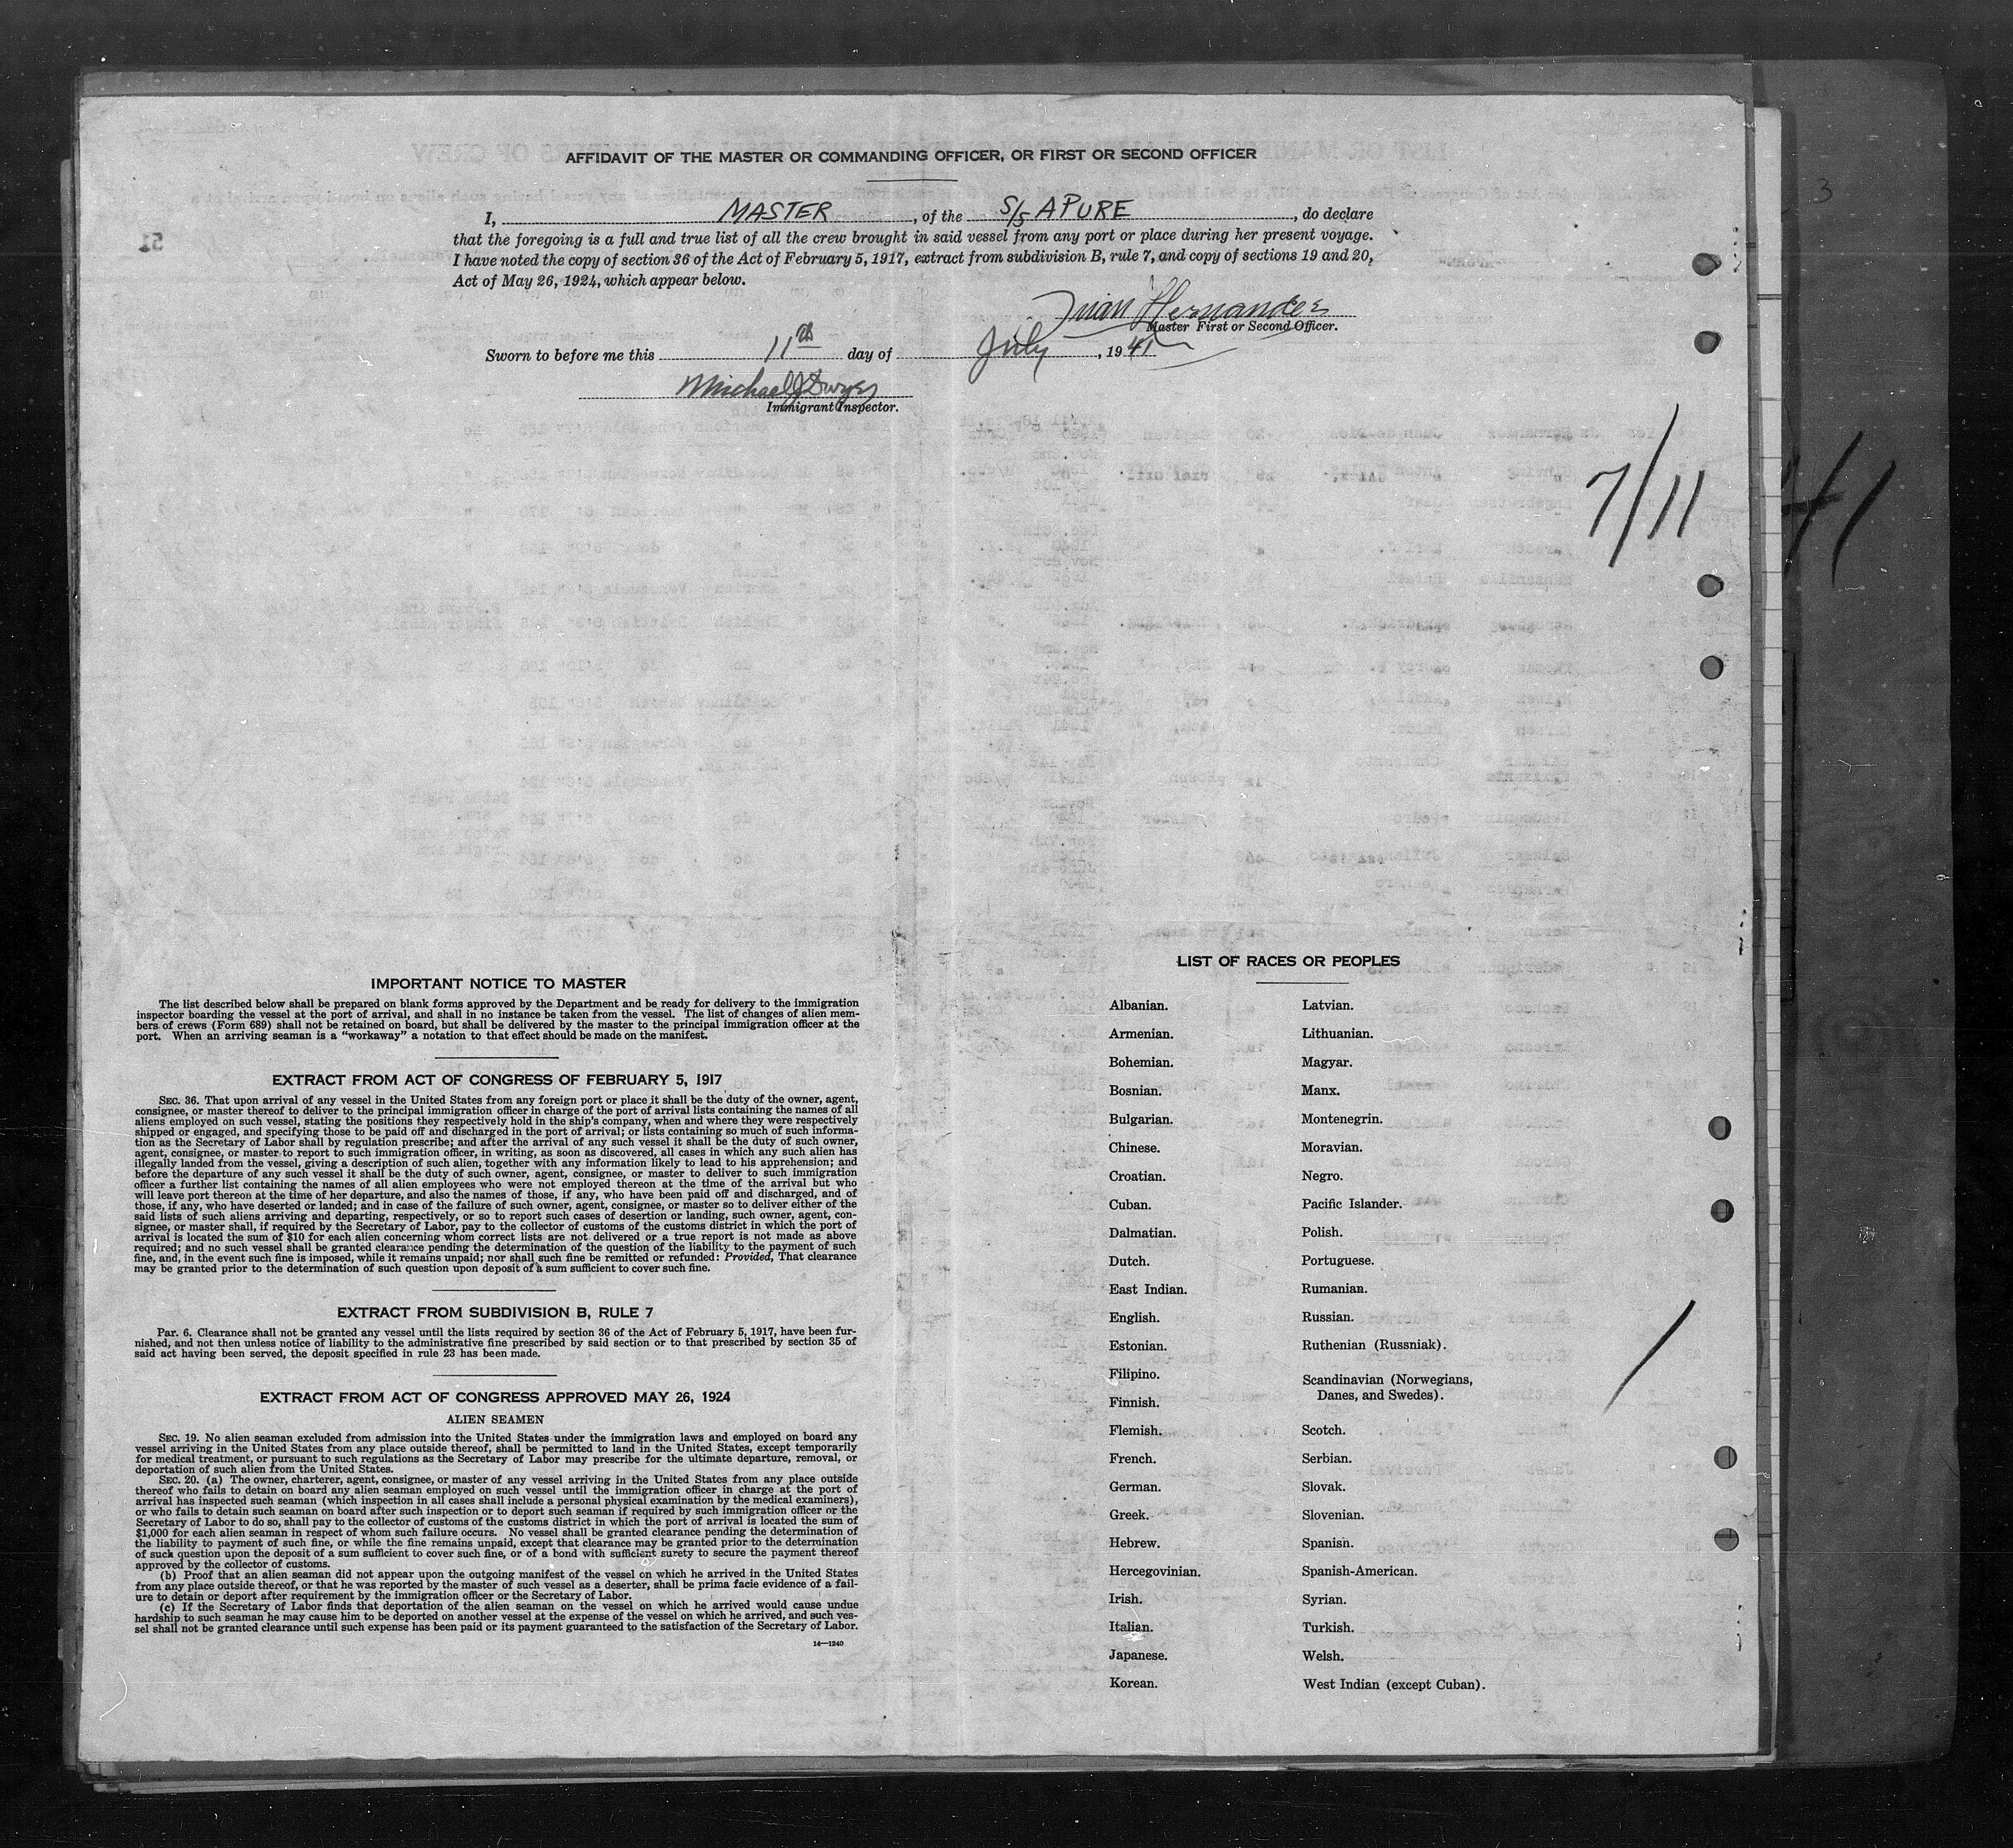 AFFIDAVIT OF THE MASTER OR COMMANDING OFFICER, OR FIRST OR SECOND OFFICER
I, MASTER, of the S/S APURE, do declare
that the foregoing is a full and true list of all the crew brought in said vessel from any port or place during her present voyage.
I have noted the copy of section 36 of the Act of February 5, 1917, extract from subdivision B, rule 7, and copy of sections 19 and 20,
Act of May 26, 1924, which appear below.
Juan Hernandez
Master First or Second Officer.
Sworn to before me this 11th day of July, 1941
Michael J Dwyer
Immigrant Inspector.
7/11/41
3
51
IMPORTANT NOTICE TO MASTER
The list described below shall be prepared on blank forms approved by the Department and be ready for delivery to the immigration
inspector boarding the vessel at the port of arrival, and shall in no instance be taken from the vessel. The list of changes of alien mem-
bers of crews (Form 689) shall not be retained on board, but shall be delivered by the master to the principal immigration officer at the
port. When an arriving seaman is a "workaway" a notation to that effect should be made on the manifest.
EXTRACT FROM ACT OF CONGRESS OF FEBRUARY 5, 1917
SEC. 36. That upon arrival of any vessel in the United States from any foreign port or place it shall be the duty of the owner, agent,
consignee, or master thereof to deliver to the principal immigration officer in charge of the port of arrival lists containing the names of all
aliens employed on such vessel, stating the positions they respectively hold in the ship's company, when and where they were respectively
shipped or engaged, and specifying those to be paid off and discharged in the port of arrival; or lists containing so much of such informa-
tion as the Secretary of Labor shall by regulation prescribe; and after the arrival of any such vessel it shall be the duty of such owner,
agent, consignee, or master to report to such immigration officer, in writing, as soon as discovered, all cases in which any such alien has
illegally landed from the vessel, giving a description of such alien, together with any information likely to lead to his apprehension; and
before the departure of any such vessel it shall be the duty of such owner, agent, consignee, or master to deliver to such immigration
officer a further list containing the names of all alien employees who were not employed thereon at the time of the arrival but who
will leave port thereon at the time of her departure, and also the names of those, if any, who have been paid off and discharged, and of
those, if any, who have deserted or landed; and in case of the failure of such owner, agent, consignee, or master so to deliver either of the
said lists of such aliens arriving and departing, respectively, or so to report such cases of desertion or landing, such owner, agent, con-
signee, or master shall, if required by the Secretary of Labor, pay to the collector of customs of the customs district in which the port of
arrival is located the sum of $10 for each alien concerning whom correct lists are not delivered or a true report is not made as above
required; and no such vessel shall be granted clearance pending the determination of the question of the liability to the payment of such
fine, and, in the event such fine is imposed, while it remains unpaid; nor shall such fine be remitted or refunded: Provided, That clearance
may be granted prior to the determination of such question upon deposit of a sum sufficient to cover such fine.
EXTRACT FROM SUBDIVISION B, RULE 7
Par. 6. Clearance shall not be granted any vessel until the lists required by section 36 of the Act of February 5, 1917, have been fur-
nished, and not then unless notice of liability to the administrative fine prescribed by said section or to that prescribed by section 35 of
said act having been served, the deposit specified in rule 23 has been made.
EXTRACT FROM ACT OF CONGRESS APPROVED MAY 26, 1924
ALIEN SEAMEN
SEC. 19. No alien seaman excluded from admission into the United States under the immigration laws and employed on board any
vessel arriving in the United States from any place outside thereof, shall be permitted to land in the United States, except temporarily
for medical treatment, or pursuant to such regulations as the Secretary of Labor may prescribe for the ultimate departure, removal, or
deportation of such alien from the United States.
SEC. 20. (a) The owner, charterer, agent, consignee, or master of any vessel arriving in the United States from any place outside
thereof who fails to detain on board any alien seaman employed on such vessel until the immigration officer in charge at the port of
arrival has inspected such seaman (which inspection in all cases shall include a personal physical examination by the medical examiners),
or who fails to detain such seaman on board after such inspection or to deport such seaman if required by such immigration officer or the
Secretary of Labor to do so, shall pay to the collector of customs of the customs district in which the port of arrival is located the sum of
$1,000 for each alien seaman in respect of whom such failure occurs. No vessel shall be granted clearance pending the determination of
the liability to payment of such fine, or while the fine remains unpaid, except that clearance may be granted prior to the determination
of such question upon the deposit of a sum sufficient to cover such fine, or of a bond with sufficient surety to secure the payment thereof
approved by the collector of customs.
(b) Proof that an alien seaman did not appear upon the outgoing manifest of the vessel on which he arrived in the United States
from any place outside thereof, or that he was reported by the master of such vessel as a deserter, shall be prima facie evidence of a fail-
ure to detain or deport after requirement by the immigration officer or the Secretary of Labor.
(c) If the Secretary of Labor finds that deportation of the alien seaman on the vessel on which he arrived would cause undue
hardship to such seaman he may cause him to be deported on another vessel at the expense of the vessel on which he arrived, and such ves-
sel shall not be granted clearance until such expense has been paid or its payment guaranteed to the satisfaction of the Secretary of Labor.
14—1240
LIST OF RACES OR PEOPLES
Albanian.
Armenian.
Bohemian.
Bosnian.
Bulgarian.
Chinese.
Croatian.
Cuban.
Dalmatian.
Dutch.
East Indian.
English.
Estonian.
Filipino.
Finnish.
Flemish.
French.
German.
Greek.
Hebrew.
Hercegovinian.
Irish.
Italian.
Japanese.
Korean.
Latvian.
Lithuanian.
Magyar.
Manx.
Montenegrin.
Moravian.
Negro.
Pacific Islander.
Polish.
Portuguese.
Rumanian.
Russian.
Ruthenian (Russniak).
Scandinavian (Norwegians,
Danes, and Swedes).
Scotch.
Serbian.
Slovak.
Slovenian.
Spanish.
Spanish-American.
Syrian.
Turkish.
Welsh.
West Indian (except Cuban).